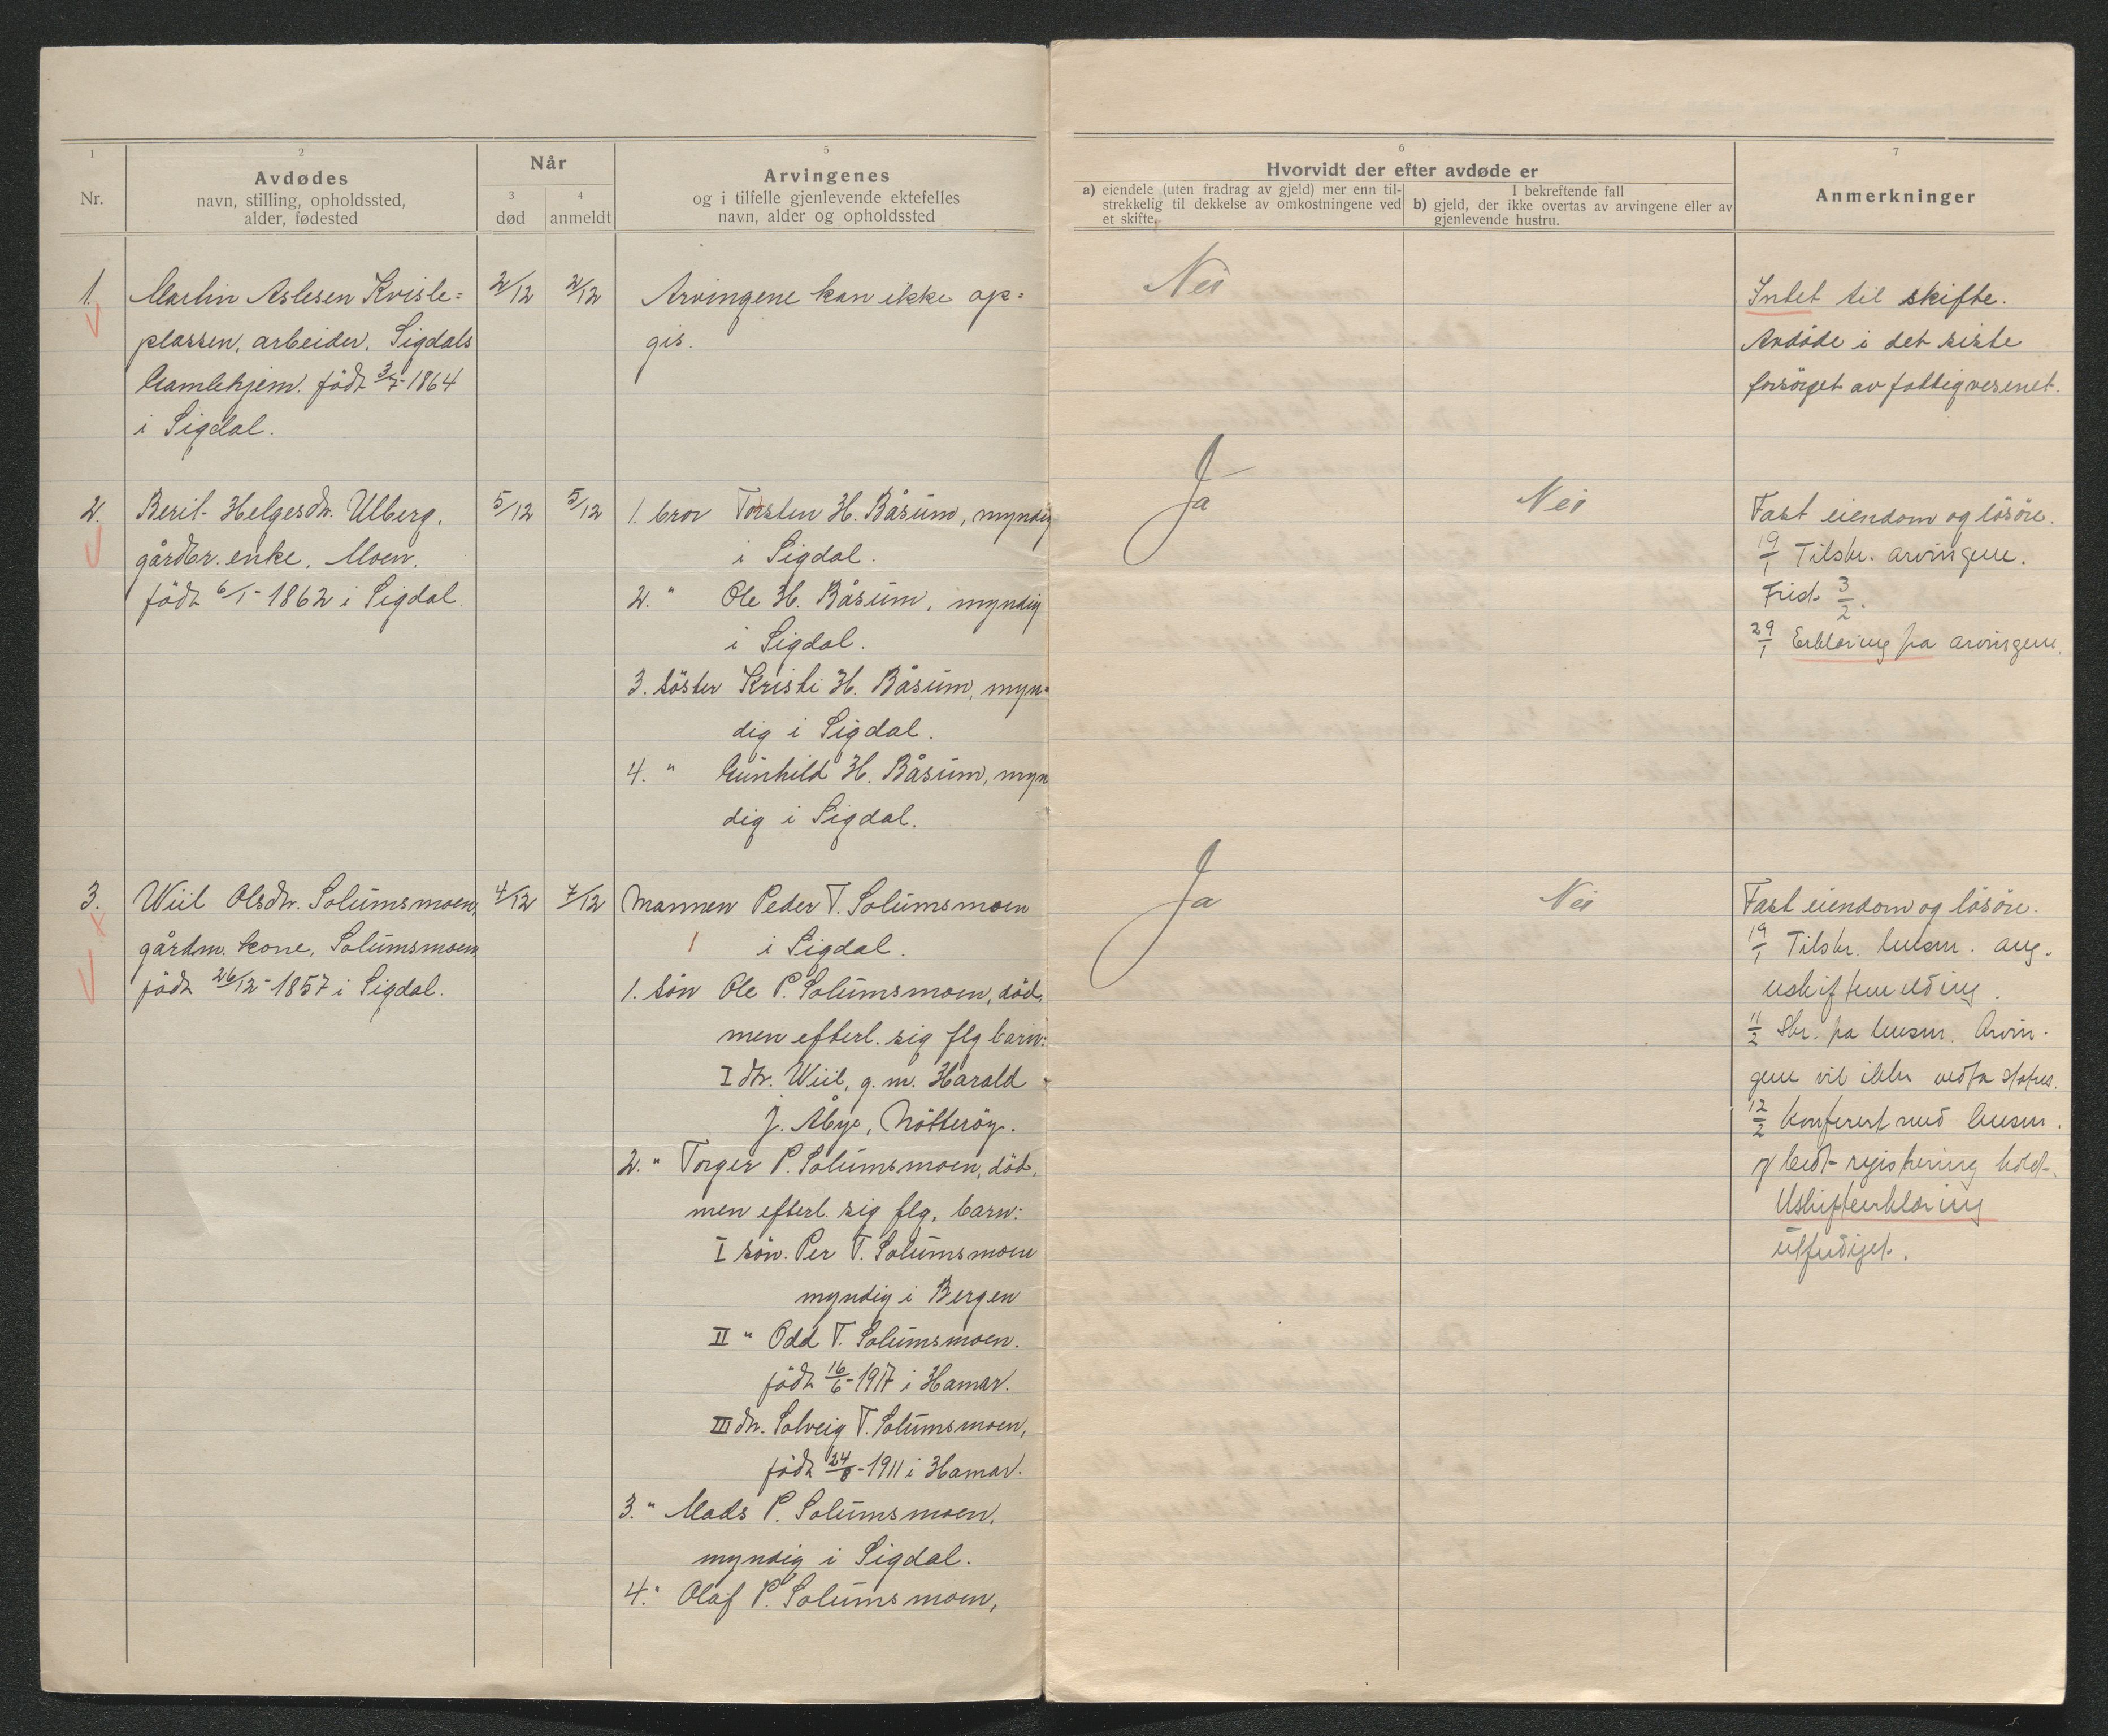 1
Nr.
2
Avdødes
navn, stilling, opholdssted,
alder, fødested
Når
3
død
4
anmeldt
5
Arvingenes
og i tilfelle gjenlevende ektefelles
navn, alder og opholdssted
6
Hvorvidt der efter avdøde er
a) eiendele (uten fradrag av gjeld) mer enn til-
strekkelig til dekkelse av omkostningene ved
et skifte.
I bekreftende fall
b) gjeld, der ikke overtas av arvingene eller av
gjenlevende hustru.
7
Anmerkninger
1.
Martin Aslesen Kvisle=
plassen, arbeider, Sigdals
Gamlehjem. født 3/7-1864
i Sigdal.
2/12
2/12
Arvingene kan ikke op=
gis.
Nei
Intet til skifte.
Avdøde i det siste
forsørget av fattigvesenet.
2.
Berit Helgesdtr. Ulberg,
gårdbr. enke, Moen.
født 6/1-1862 i Sigdal
5/12
5/12
1. bror Torsten H. Båsum, myndig
i Sigdal.
2. " Ole H. Båsum, myndig
i Sigdal.
3. søster Kristi H. Båsum, myn=
dig i Sigdal.
4. " Gunhild H. Båsum, myn
dig i Sigdal.
Ja
Nei
Fast eiendom og løsøre.
19/1 Tilskr. arvingene.
Frist 3/2.
29/1 Erklæring fra arvingene.
3.
Wiil Olsdtr. Solumsmoen,
gårdm. kone, Solumsmoen
født 26/12-1857 i Sigdal.
4/12
7/12
Mannen Peder T. Solumsmoen
i Sigdal.
1. søn Ole P. Solumsmoen, død,
men efterl. sig flg barn:
I dtr. Wiil, g. m. Harald
J. Åbye, Nøtterøy.
2. " Torger P. Solumsmoen, død,
men efterl. sig flg. barn:
I søn. Per T. Solumsmoen
myndig i Bergen
II " Odd T. Solumsmoen.
født 16/6-1917 i Hamar.
III dtr. Solveig T. Solumsmoen,
født 24/8-1911 i Hamar.
3. " Mads P. Solumsmoen,
myndig i Sigdal.
4. " Olaf P. Solumsmoen,
Ja
Nei
Fast eiendom og løsøre.
19/1 Tilskr. lensm. ang.
uskiftemelding.
11/2 Skr. fra lensm. Arvin-
gene vil ikke vedta status.
12/2 Konferert med lensm.
og bedt registrering holdt.
Uskifteerklæring
utferdiget.